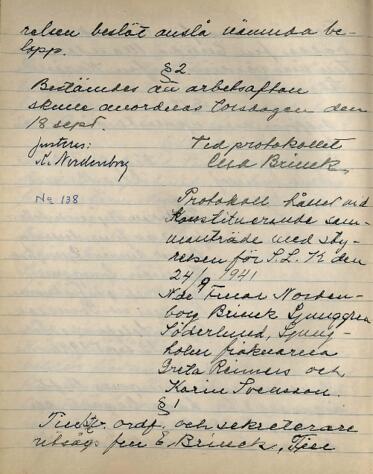 relsen beslöt anslå nämnda be-
lopp.
§ 2.
Bestämdes en arbetsafton
skulle anordnas torsdagen den
18 sept.
Justeras: Vid protokollet
K. Nordenborg Elsa Brinck.
No 138
Protokoll hållet vid
Konstituerande sam-
manträde med sty-
relsen för S.L.K den
24/9 1941
Nde Fruar Norden-
borg Brinck Ljunggren
Söderlund, Ljung-
holm fröknarna
Greta Reimers och
Karin Svensson.
§ 1
Till ordf. och sekreterare
utsågs fru E. Brinck,